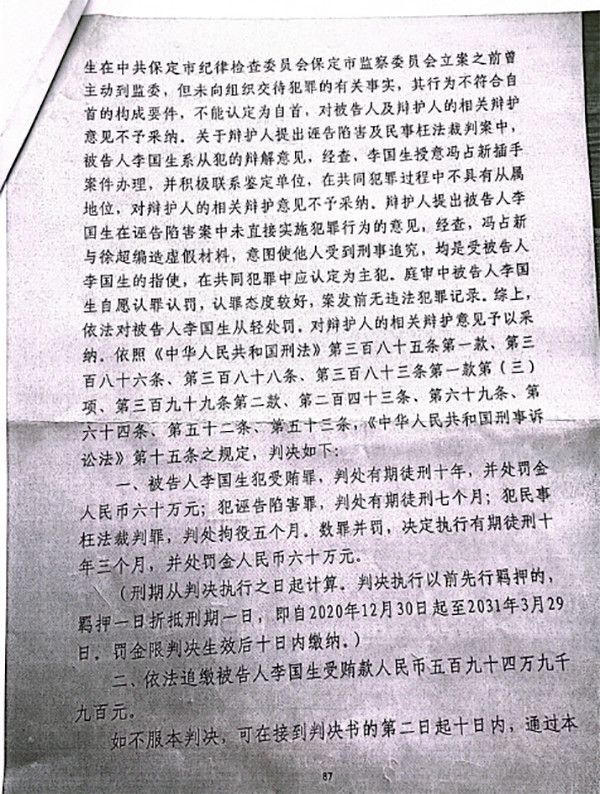 生在中共保定市纪律检查委员会保定市监察委员会立案之前曾
主动到监委，但未向组织交待犯罪的有关事实，其行为不符合自
首的构成要件，不能认定为自首，对被告人及辩护人的相关辩护
意见不予采纳。关于辩护人提出诬告陷害及民事枉法裁判案中，
被告人李国生系从犯的辩解意见，经查，李国生授意冯占新插手
案件办理，并积极联系鉴定单位，在共同犯罪过程中不具有从属
地位，对辩护人的相关辩护意见不予采纳。辩护人提出被告人李
国生在诬告陷害案中未直接实施犯罪行为的意见，经查，冯占新
与徐超编造虚假材料，意图使他人受到刑事追究，均是受被告人
李国生的指使，在共同犯罪中应认定为主犯。庭审中被告人李国
生自愿认罪认罚，认罪态度较好，案发前无违法犯罪记录。综上，
依法对被告人李国生从轻处罚。对辩护人的相关辩护意见予以采
纳。依照《中华人民共和国刑法》第三百八十五条第一款、第三
百八十六条、第三百八十八条、第三百八十三条第一款第（三）
项、第三百九十九条第二款、第二百四十三条、第六十九条、第
六十四条、第五十二条、第五十三条，《中华人民共和国刑事诉
讼法》第十五条之规定，判决如下：
一、被告人李国生犯受贿罪，判处有期徒刑十年，并处罚金
人民币六十万元；犯诬告陷害罪，判处有期徒刑七个月；犯民事
枉法裁判罪，判处拘役五个月。数罪并罚，决定执行有期徒刑十
年三个月，并处罚金人民币六十万元。
（刑期从判决执行之日起计算。判决执行以前先行羁押的，
羁押一日折抵刑期一日，即自2020年12月30日起至2031年3月29
日。罚金限判决生效后十日内缴纳。）
二、依法追缴被告人李国生受贿款人民币五百九十四万九千
九百元。
如不服本判决，可在接到判决书的第二日起十日内，通过本
87